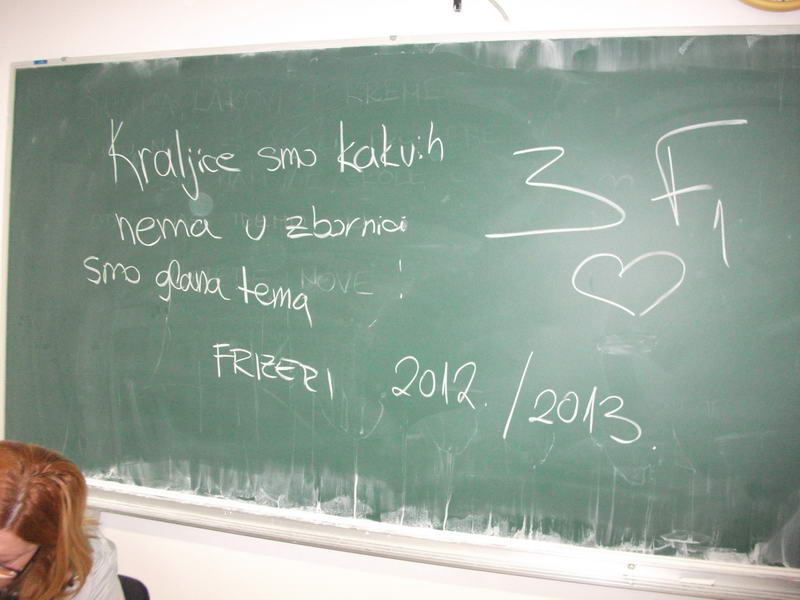 Kraljice smo kakvih
nema u zbornici
smo glavna tema !
3 F1
FRIZERI 2012. / 2013.
KREME
NOVE